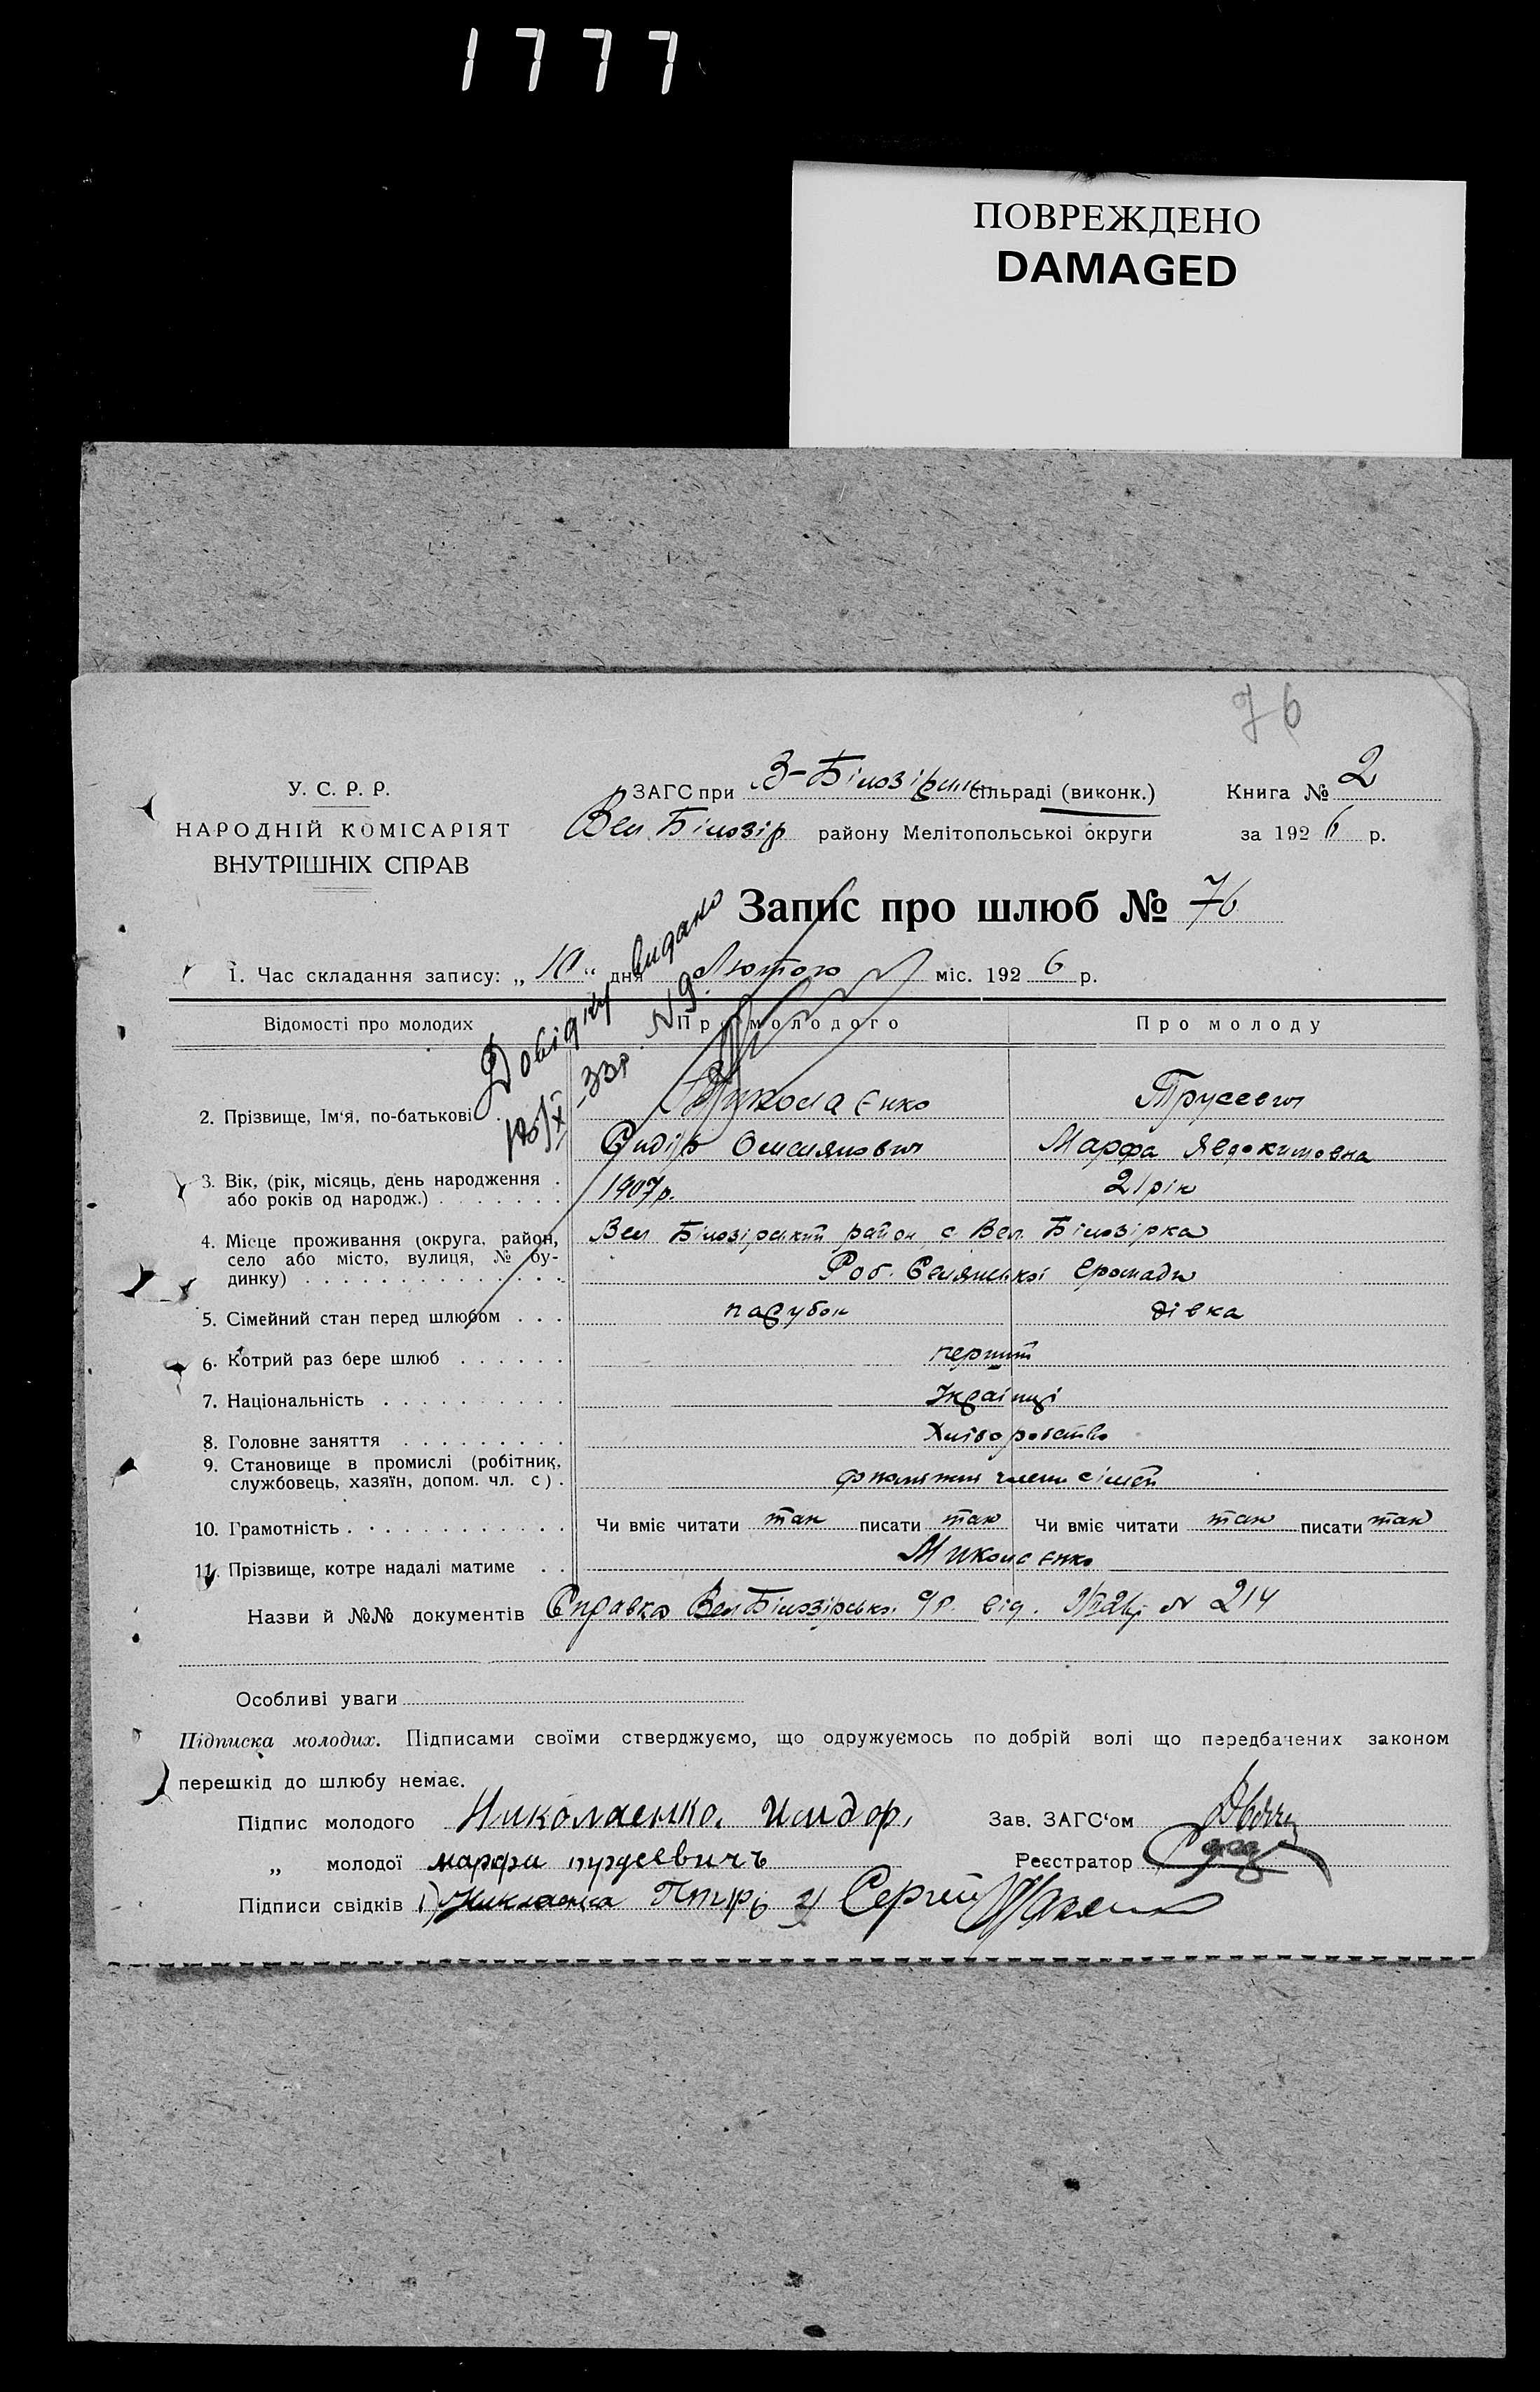 1777
ПОВРЕЖДЕНО
DAMAGED
76
У. С. Р. Р.
НАРОДНІЙ КОМІСАРІЯТ
ВНУТРІШНІХ СПРАВ
ЗАГС при В-Білозірськ сільраді (виконк.)
Вел Білозір району Мелітопольської округи
Книга № 2
за 1926 р.
Запис про шлюб № 76
Довідку видано
-33р. N 9
1. Час складання запису: „10“ дня Лютого міс. 1926 р.
Відомості про молодих Про молодого Про молоду
2. Прізвище, Ім'я, по-батькові Миколаєнко Трусевич
Сидір Омелянович Марфа Явдокимовна
3. Вік, (рік, місяць, день народження або років од народж.) 1907р. 21 рік
4. Місце проживання (округа, район, село або місто, вулиця, № будинку) Вел Білозірський район с Вел. Білозірка
Роб. Селянської Громади
5. Сімейний стан перед шлюбом парубок дівка
6. Котрий раз бере шлюб перший
7. Національність Українці
8. Головне заняття Хліборобство
9. Становище в промислі (робітник, службовець, хазяїн, допом. чл. с) допомжні члени сімей
10. Грамотність Чи вміє читати так писати так Чи вміє читати так писати так
11. Прізвище, котре надалі матиме Миколаєнко
Назви й №№ документів Справка Вел Білозірської с/р. від N 214
Особливі уваги
Підписка молодих. Підписами своїми стверджуємо, що одружуємось по добрій волі що передбачених законом
перешкід до шлюбу немає.
Підпис молодого Николаенко. Исидор,
Зав. ЗАГС'ом
„ молодої марфа трусевичъ
Реєстратор
Підписи свідків 1) Николаенка Петръ 2) Сергей